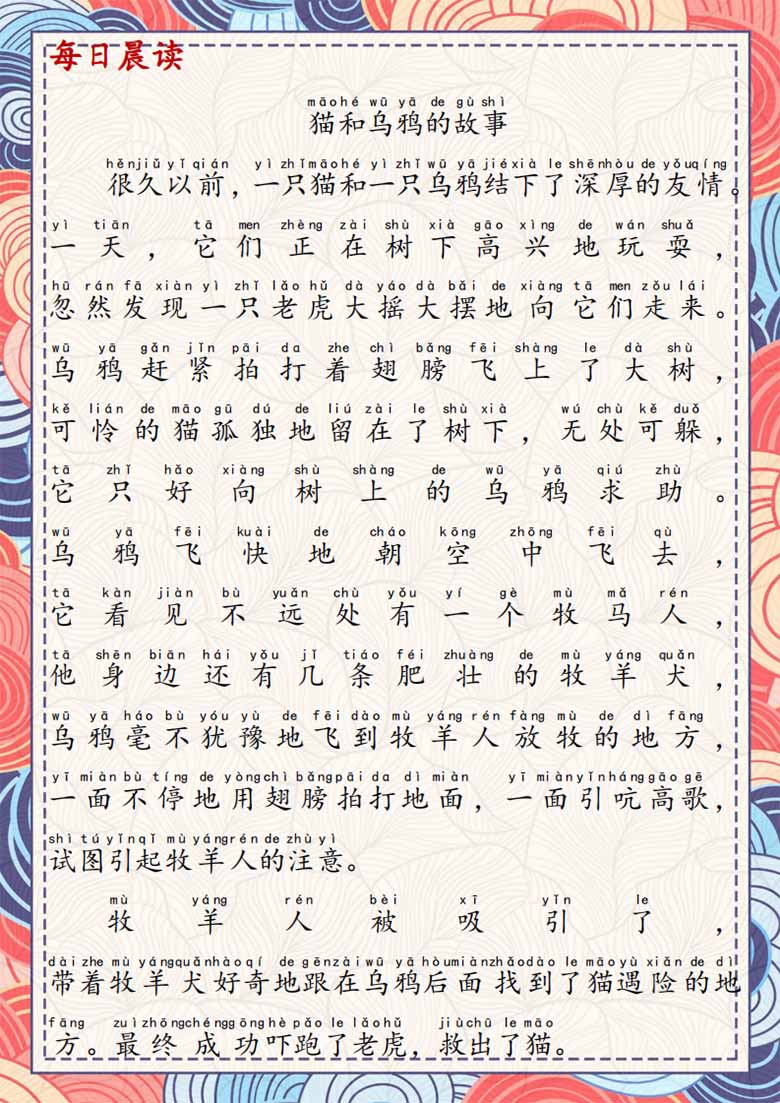 每日晨读
māo hé wū yā de gù shì
猫和乌鸦的故事
hěn jiǔ yǐ qián yì zhǐ māo hé yì zhǐ wū yā jié xià le shēn hòu de yǒu qíng
很久以前，一只猫和一只乌鸦结下了深厚的友情。
yì tiān tā men zhèng zài shù xià gāo xìng de wán shuǎ
一天，它们正在树下高兴地玩耍，
hū rán fā xiàn yì zhǐ lǎo hǔ dà yáo dà bǎi de xiàng tā men zǒu lái
忽然发现一只老虎大摇大摆地向它们走来。
wū yā gǎn jǐn pāi da zhe chì bǎng fēi shàng le dà shù
乌鸦赶紧拍打着翅膀飞上了大树，
kě lián de māo gū dú de liú zài le shù xià wú chù kě duǒ
可怜的猫孤独地留在了树下，无处可躲，
tā zhǐ hǎo xiàng shù shàng de wū yā qiú zhù
它只好向树上的乌鸦求助。
wū yā fēi kuài de cháo kōng zhōng fēi qù
乌鸦飞快地朝空中飞去，
tā kàn jiàn bù yuǎn chù yǒu yí gè mù mǎ rén
它看见不远处有一个牧马人，
tā shēn biān hái yǒu jǐ tiáo féi zhuàng de mù yáng quǎn
他身边还有几条肥壮的牧羊犬，
wū yā háo bù yóu yù de fēi dào mù yáng rén fàng mù de dì fāng
乌鸦毫不犹豫地飞到牧羊人放牧的地方，
yī miàn bù tíng de yòng chì bǎng pāi da dì miàn yī miàn yǐn háng gāo gē
一面不停地用翅膀拍打地面，一面引吭高歌，
shì tú yǐn qǐ mù yáng rén de zhù yì
试图引起牧羊人的注意。
mù yáng rén bèi xī yǐn le
牧羊人被吸引了，
dài zhe mù yáng quǎn hào qí de gēn zài wū yā hòu miàn zhǎo dào le māo yù xiǎn de dì
带着牧羊犬好奇地跟在乌鸦后面找到了猫遇险的地
fāng zuì zhōng chéng gōng hè pǎo le lǎo hǔ jiù chū le māo
方。最终成功吓跑了老虎，救出了猫。